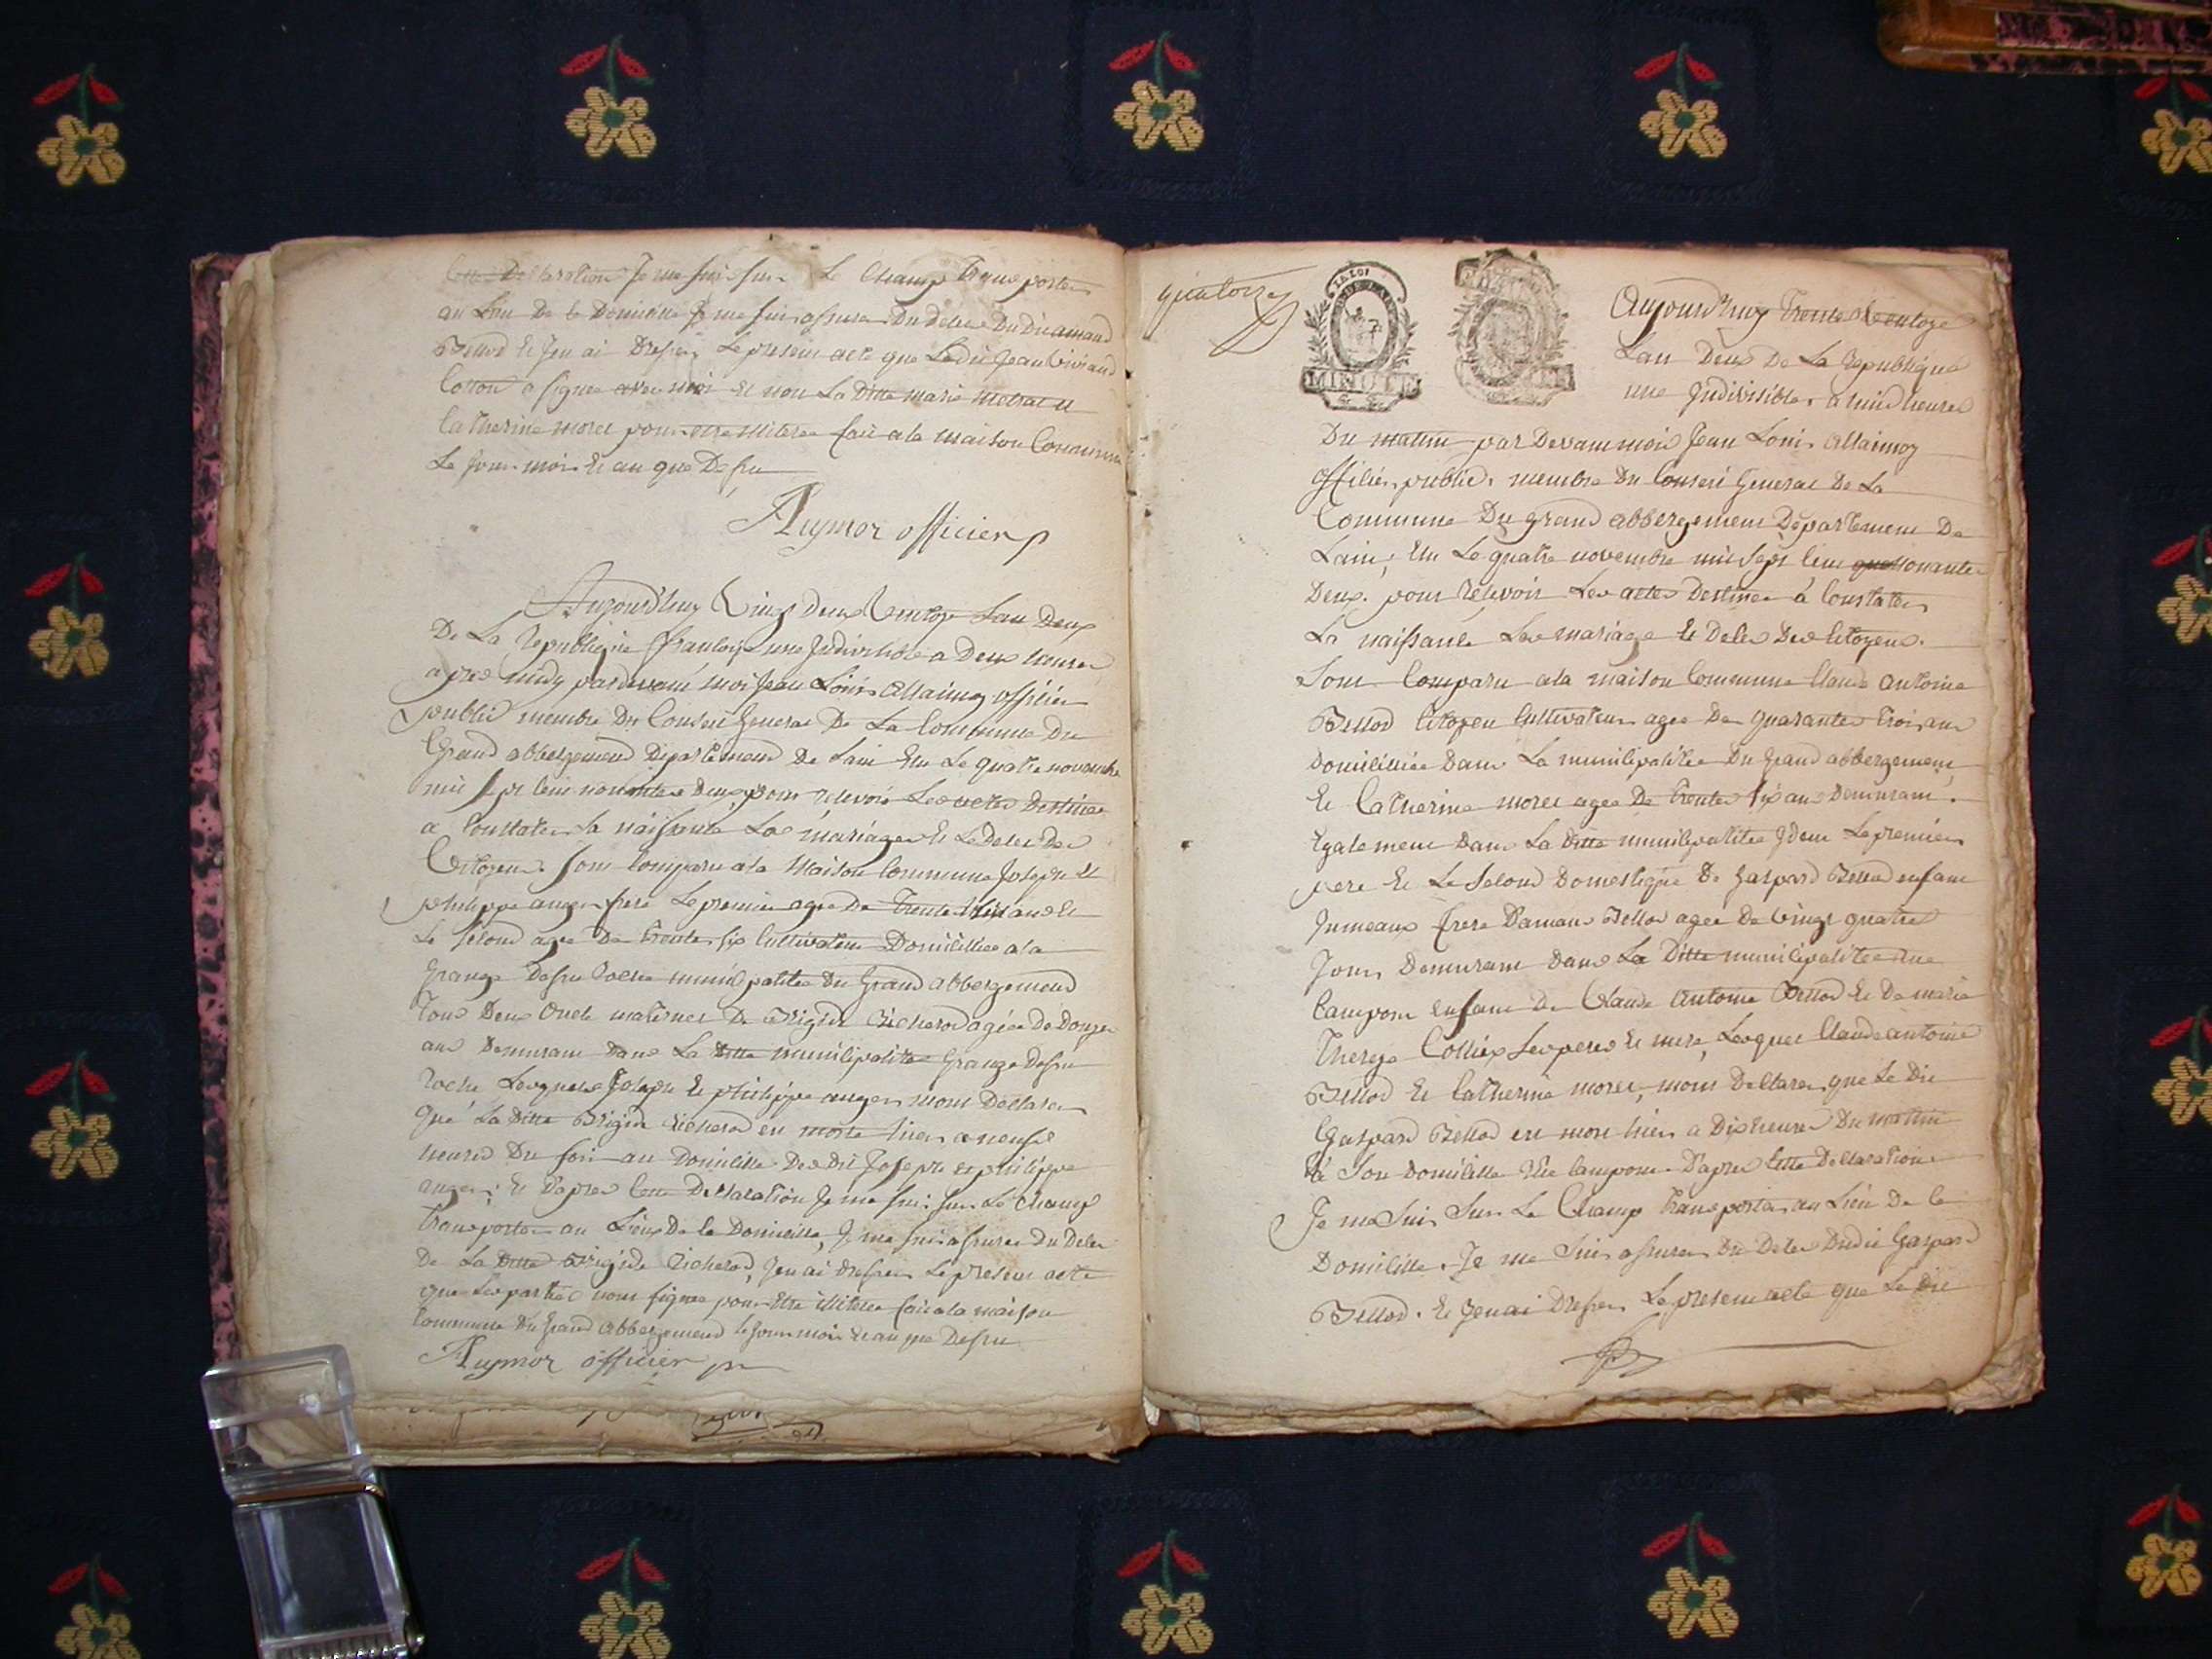 Cette Declaration Je me suis sur Le Champ transporter
au Lieu De Ce Domicille Je me suis assurer Du Deces Du Dit amand
Bellod Et Jen ai Dresser Le present acte que Ledit Jean
Cotton a signer avec moi Et non La Ditte marie Et
Catherine morel pour etre illiterée fait a la maison Commune
Le Jour mois Et an que Dessu
Aymoz officier p
Aujourd'huy Vingt Deux Ventose Lan Deux
De La Republique francoise une Indivisible a Deux heures
apres midy pardevant moi Jean Louis Allaimoz officier
public membre Du Conseil General De La Commune Du
Grand abbergement Departement De Lain Elu Le quatre novembre
mil sept cent nonante Deux pour recevoir Les actes Destinée
a Constater La naissance Les mariages Et Le Deces Des
Citoyens Sont Comparu a la Maison Commune Joseph Et
philippe anger frere Le premier agee De trente ans Et
Le second agee De trente six Cultivateur Domicilliée a la
Grange Dessu Roche municipalitée Du Grand abbergement
Tous Deux Oncle maternel De Brigide Richerod agée De Douze
ans Demurant Dans La Ditte municipalitée Grange Dessu
roche, Lesquels Joseph Et philippe anger mont Declarer
que La Ditte Brigide Richerod est morte hier a neuf
heures Du soir au Domicille Des Dit Joseph et philippe
anger; Et D'apres Cette Declaration Je me suis sur Le Champ
transporter au Lieux De Ce Domicille, Je me suis assurer Du Deces
De La Ditte Brigide Richerod, Jen ai Dresser Le present acte
que Les parties nont signée pour Etre illiterée fait a la maison
Commune Du Grand Abbergement le Jour mois Et an que Dessu
Aymoz officier p
quatorze
LA LOI
MINUTE
Aujourd'huy Trente Ventose
Lan Deux De La Republique
une Indivisible, a huid heures
Du matin par Devant moi Jean Louis Allaimoz
officier public, membre Du Conseil General De La
Commune Du grand abbergement Departement De
Lain; Elu Le quatre novembre mil sept cent nonante
Deux. pour recevoir Les actes Destinée à Constater
La naissance Les mariage Et Deces Des Citoyens.
Sont Comparu a la maison Commune Claude Antoine
Bellod Citoyen Cultivateur agee De quarante trois ans
Domicilliée Dans La municipalitée Du Grand abbergement
Et Catherine morel agee De trente six ans Demurant
Egalement Dans La Ditte municipalitée Le premier
pere Et Le Second Domestique De Gaspard Bellod enfant
Jumeaux frere Damand Bellod agee De Vingt quatre
Jours Demurant Dans La Ditte municipalitée Rue
Campom Enfant De Claude Antoine Bellod Et De marie
Thereze Colliex Ses pere Et mere, Lesquel Claude antoine
Bellod Et Catherine morel, mont Declarer, que Le Dit
Gaspard Bellod est mort hier a Dix heures Du matin
à Son Domicille Rue Campom. D'apres Cette Declaration
Je me Suis Sur Le Champ transporter au Lieu De Ce
Domicille. Je me Suis assurer Du Deces Dudit Gaspard
Bellod. Et Jen ai Dresser Le present acte que Le Dit